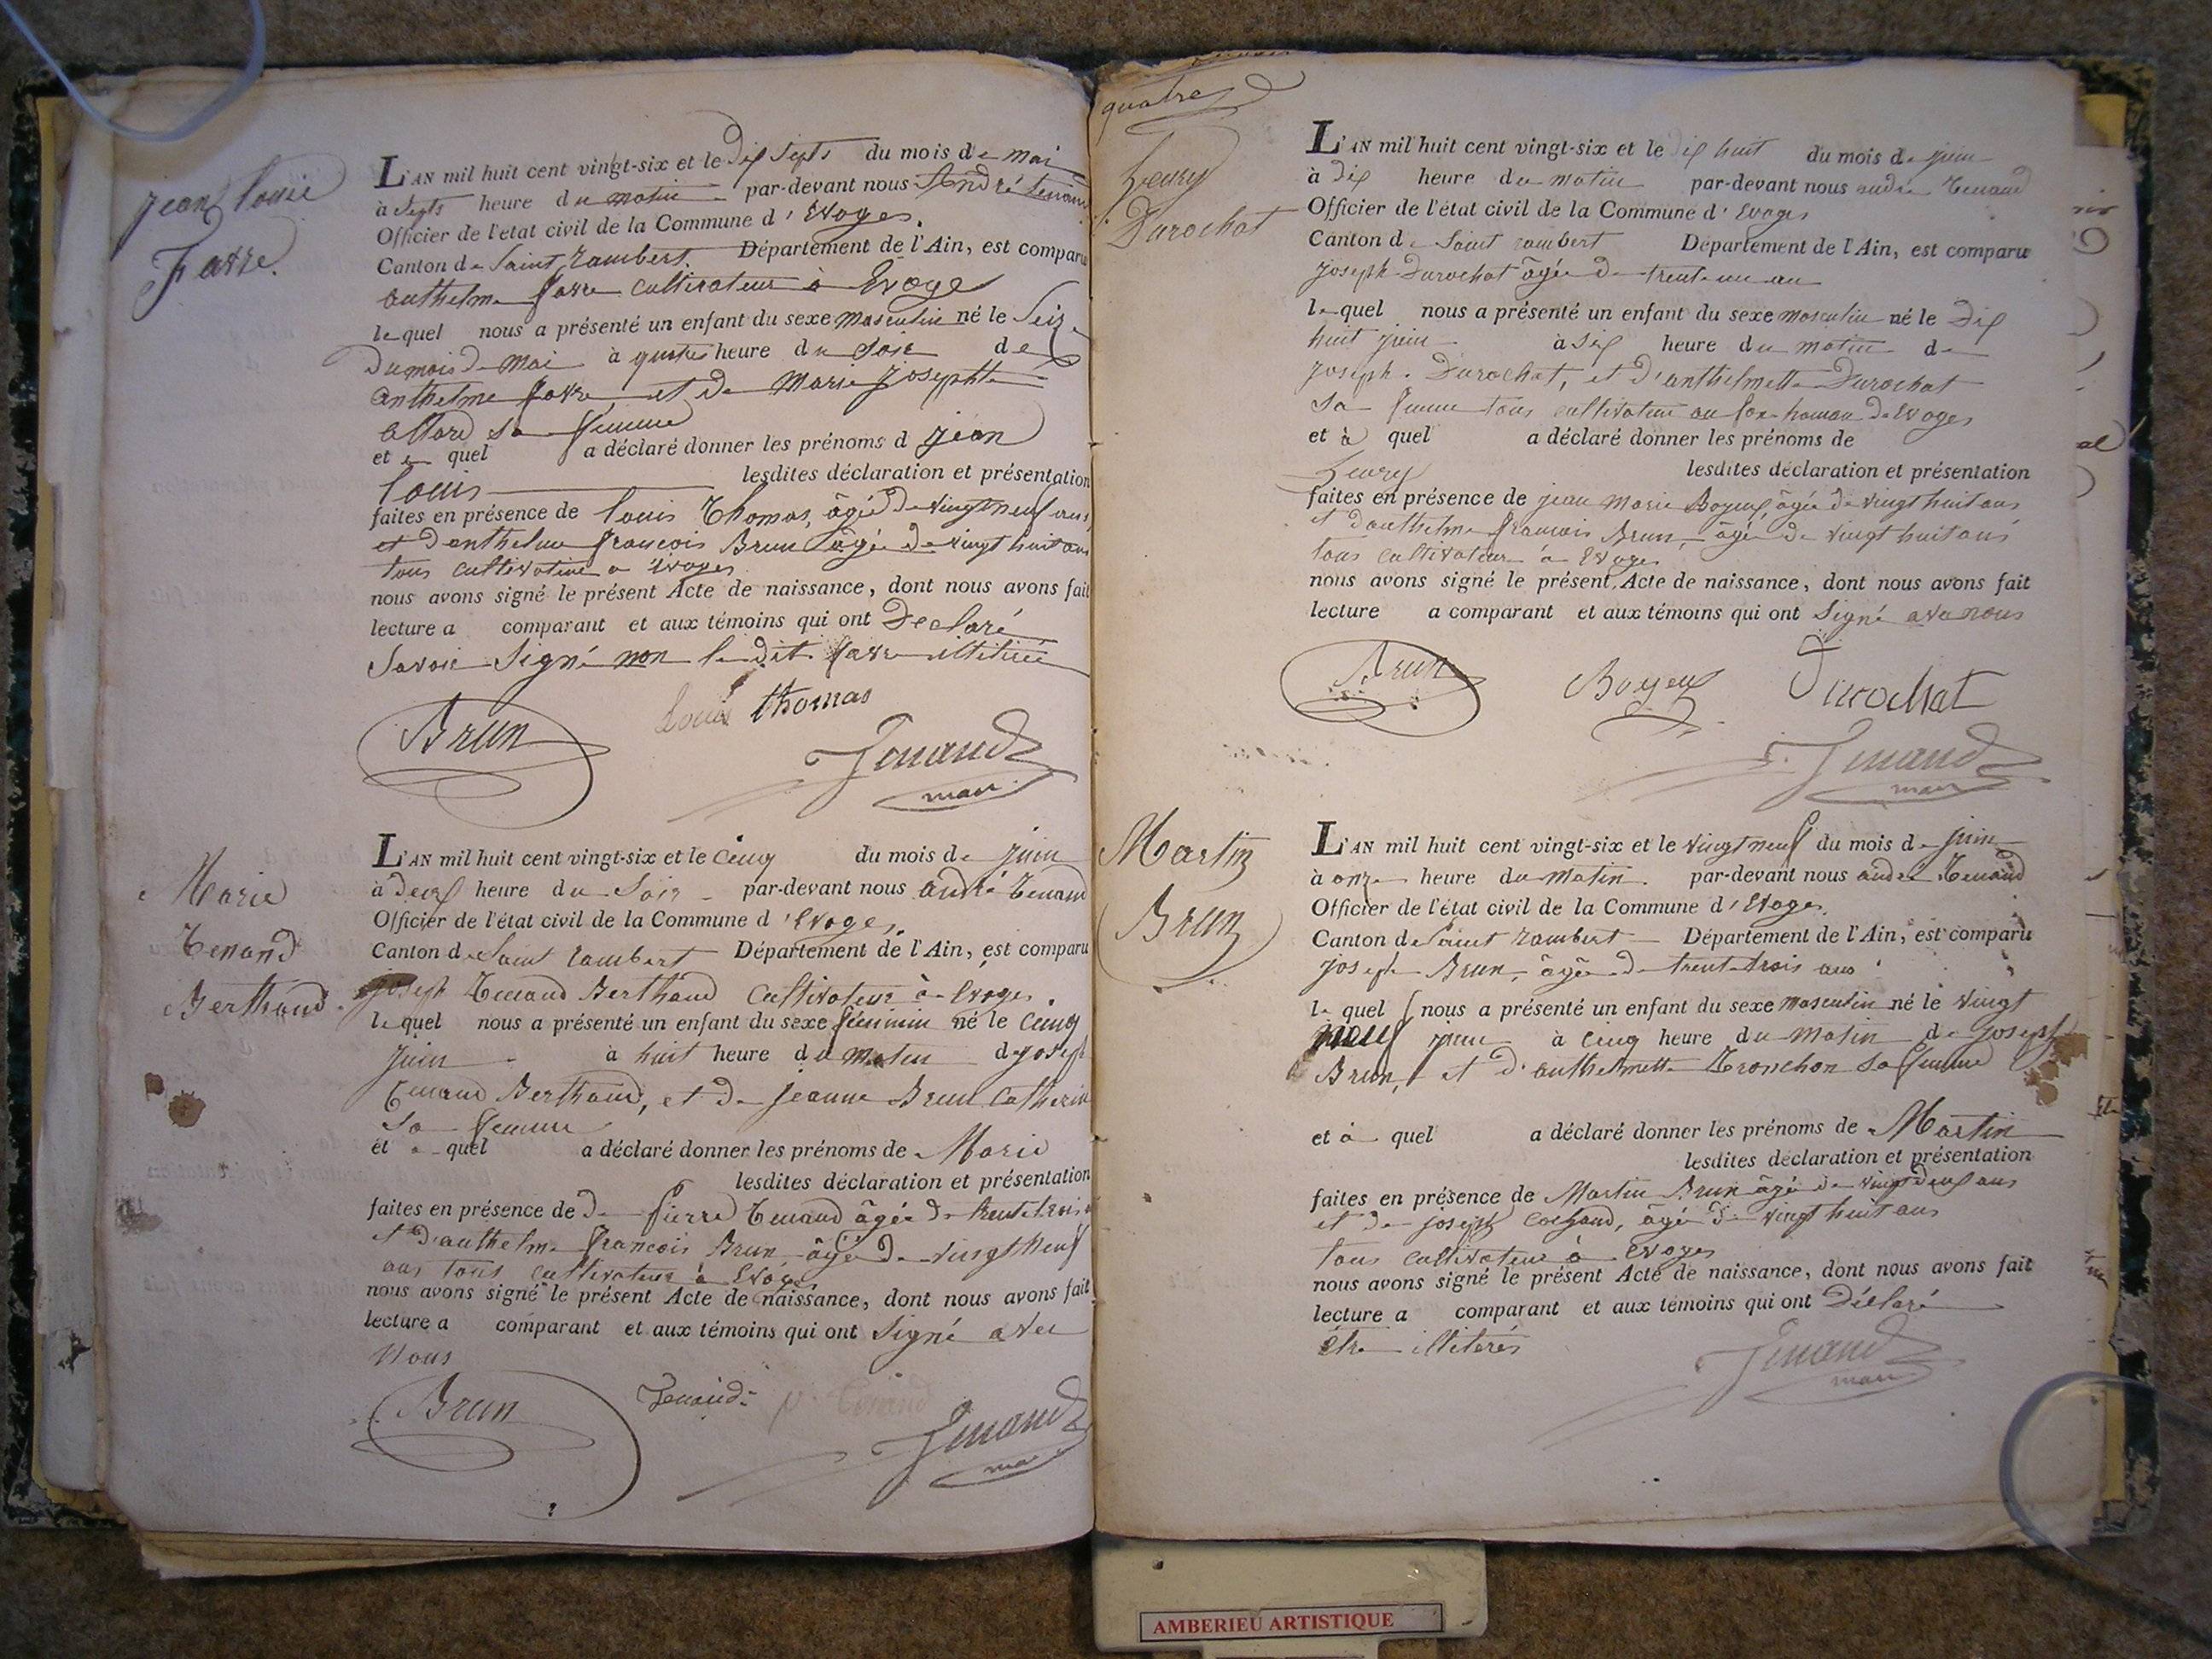 jean louis
Favre.
L'AN mil huit cent vingt-six et le dix septs du mois de mai
à septs heure du matin par-devant nous André tenand
Officier de l'état civil de la Commune d'Evoges.
Canton de Saint Rambert. Département de l'Ain, est comparu
anthelme favre cultivateur à Evoge
lequel nous a présenté un enfant du sexe masculin né le seize
du mois de mai à quatre heure du soir de
anthelme favre et de marie josephte
allard sa femme
et quel a déclaré donner les prénoms d jean
louis lesdites déclaration et présentation
faites en présence de louis Thomas, âgée de vingt neuf ans
et d'anthelme francois Brun âgée de vingt huit ans
tous cultivateur a Evoges
nous avons signé le présent Acte de naissance, dont nous avons fait
lecture a comparant et aux témoins qui ont Declaré
Savoir Signé non le dit favre illitiré
Brun louis thomas
Tenand
maire
Marie
Tenand
Berthand
L'AN mil huit cent vingt-six et le cinq du mois de juin
à deux heure du Soir par-devant nous andré Tenand
Officier de l'état civil de la Commune d'Evoges.
Canton de Saint rambert Département de l'Ain, est comparu
joseph Tenand Berthand cultivateur à Evoges.
lequel nous a présenté un enfant du sexe féminin né le cinq
juin à huit heure du matin de joseph
Tenand Berthand, et de jeanne Brun Catherin
sa femme
et a quel a déclaré donner les prénoms de Marie
lesdites déclaration et présentation
faites en présence de de pierre Tenand âgée de trente trois
et d'anthelme francois Brun âgée de vingt neuf
ans tous cultivateur à Evoges
nous avons signé le présent Acte de naissance, dont nous avons fait
lecture a comparant et aux témoins qui ont Signé avec
Nous
Brun Tenand p. Tenand
Tenand
quatre
henry
Durochat
L'AN mil huit cent vingt-six et le dix huit du mois de juin
à dix heure du matin par-devant nous andré Tenand
Officier de l'état civil de la Commune d'Evoges
Canton de Saint rambert Département de l'Ain, est comparu
joseph Durochat âgée de trente un an
lequel nous a présenté un enfant du sexe masculin né le dix
huit juin à six heure du matin de
joseph. Durochat, et d'anthelmette Durochat
sa femme tous cultivateur au hamau de Evoges
et à quel a déclaré donner les prénoms de
henry lesdites déclaration et présentation
faites en présence de jean marie Boyeux âgée de vingt huit ans
et d'anthelme francois Brun, âgée de vingt huit ans
tous cultivateur à Evoges
nous avons signé le présent Acte de naissance, dont nous avons fait
lecture a comparant et aux témoins qui ont Signé avec nous
Brun Boyeux Durochat
Tenand
maire
Martin
Brun
L'AN mil huit cent vingt-six et le vingt neuf du mois de juin
à onze heure du matin. par-devant nous andré Tenand
Officier de l'état civil de la Commune d'Evoges.
Canton de Saint rambert Département de l'Ain, est comparu
joseph Brun, âgée de trente trois ans
le quel nous a présenté un enfant du sexe masculin né le vingt
neuf juin à cinq heure du matin de joseph
Brun, et d'anthelmette Tronchon sa femme
et à quel a déclaré donner les prénoms de Martin
lesdites déclaration et présentation
faites en présence de Martin Brun âgé de vingt deux ans
et de joseph âgé de vingt huit ans
tous cultivateur à Evoges
nous avons signé le présent Acte de naissance, dont nous avons fait
lecture a comparant et aux témoins qui ont Déclaré
être illiterés
Tenand
maire
AMBERIEU ARTISTIQUE